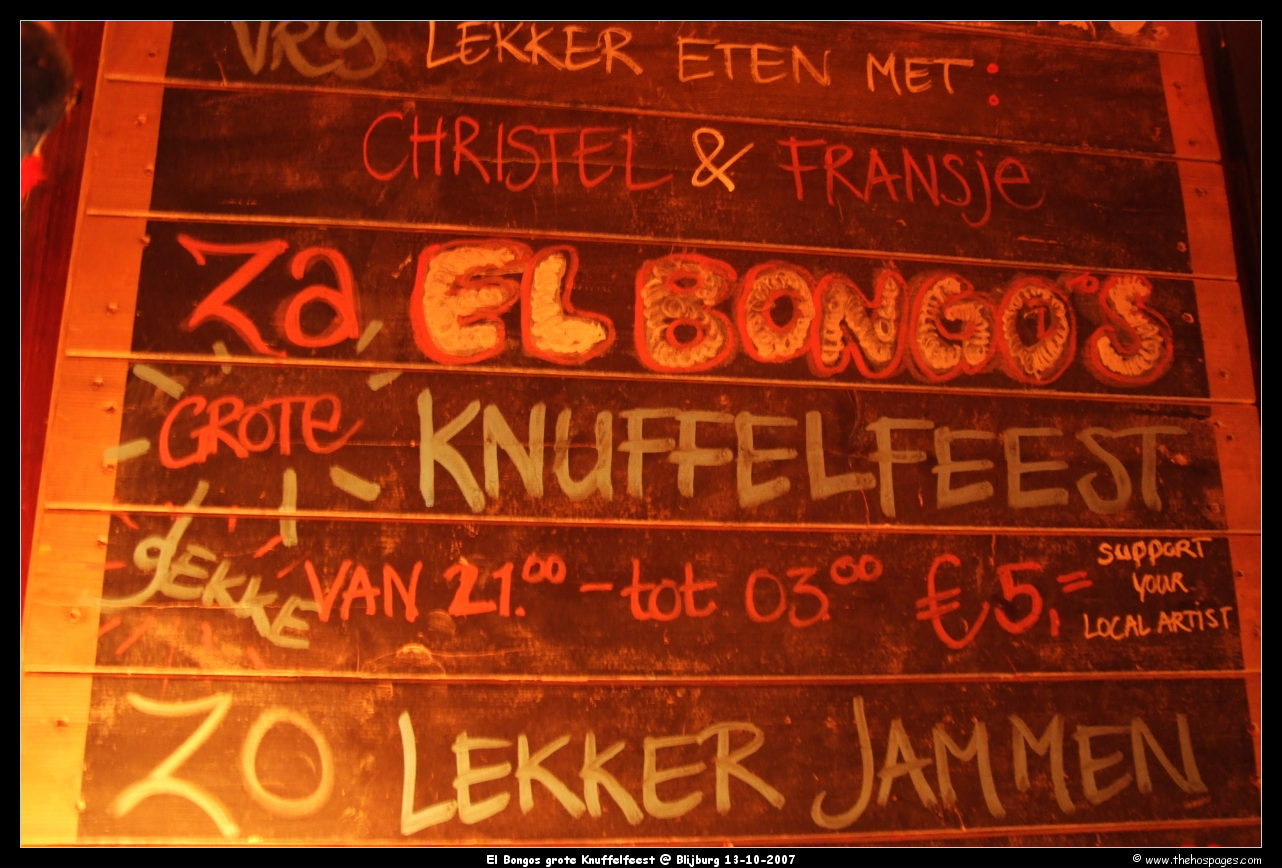 VRY LEKKER ETEN MET:
CHRISTEL & FRANSje
Za EL BONGO'S
GROTE KNUFFELFEEST
GEKKE VAN 21.00 - tot 03.00 €5,=
SUPPORT
YOUR
LOCAL ARTIST
ZO LEKKER JAMMEN
El Bongos grote Knuffelfeest @ Blijburg 13-10-2007
© www.thehospages.com